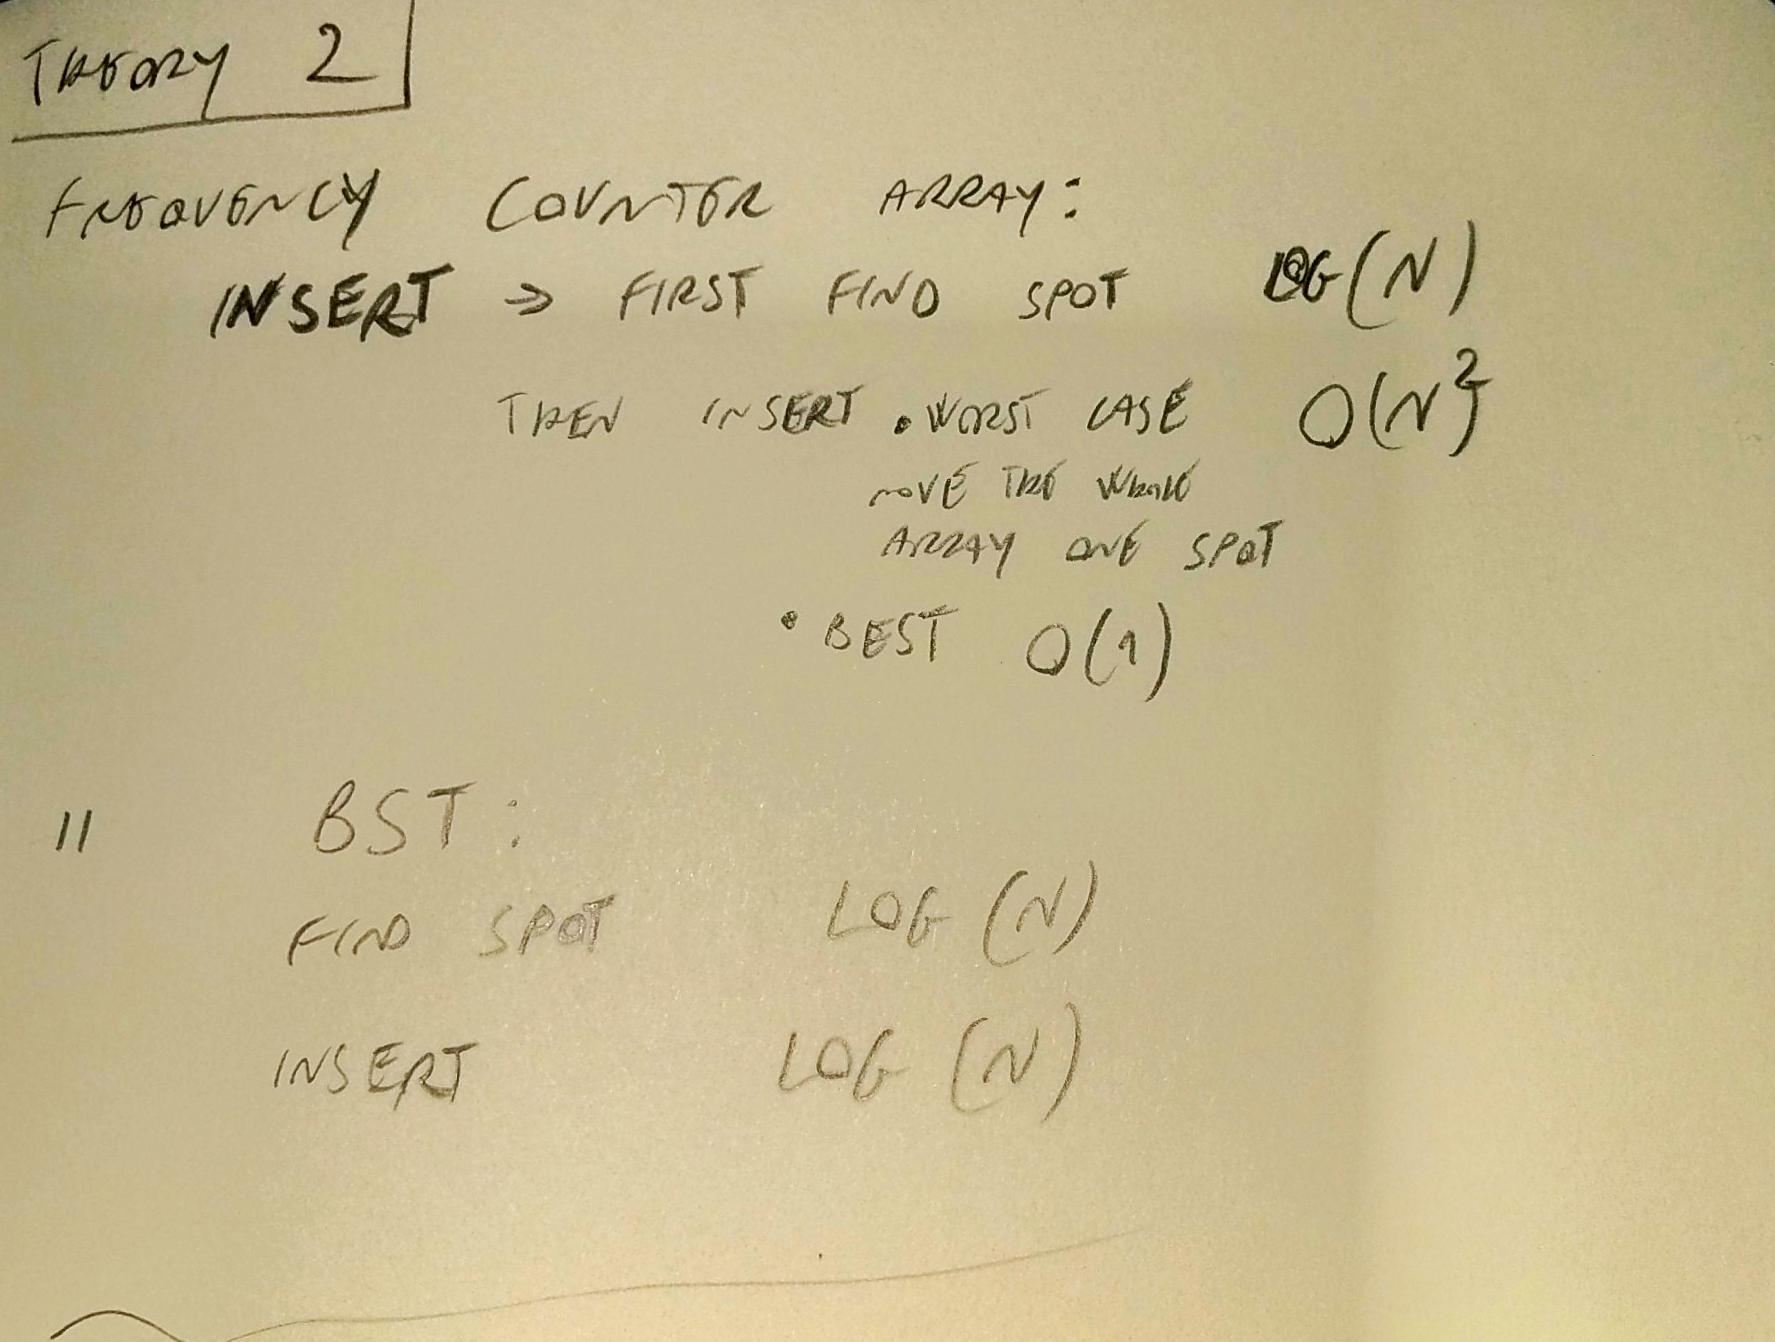 THEORY 2
FREQUENCY COUNTER ARRAY:
INSERT → FIRST FIND SPOT LOG(N)
THEN INSERT • WORST CASE O(N²)
MOVE THE WHOLE
ARRAY ONE SPOT
• BEST O(1)
11 BST:
FIND SPOT LOG (N)
INSERT LOG (N)